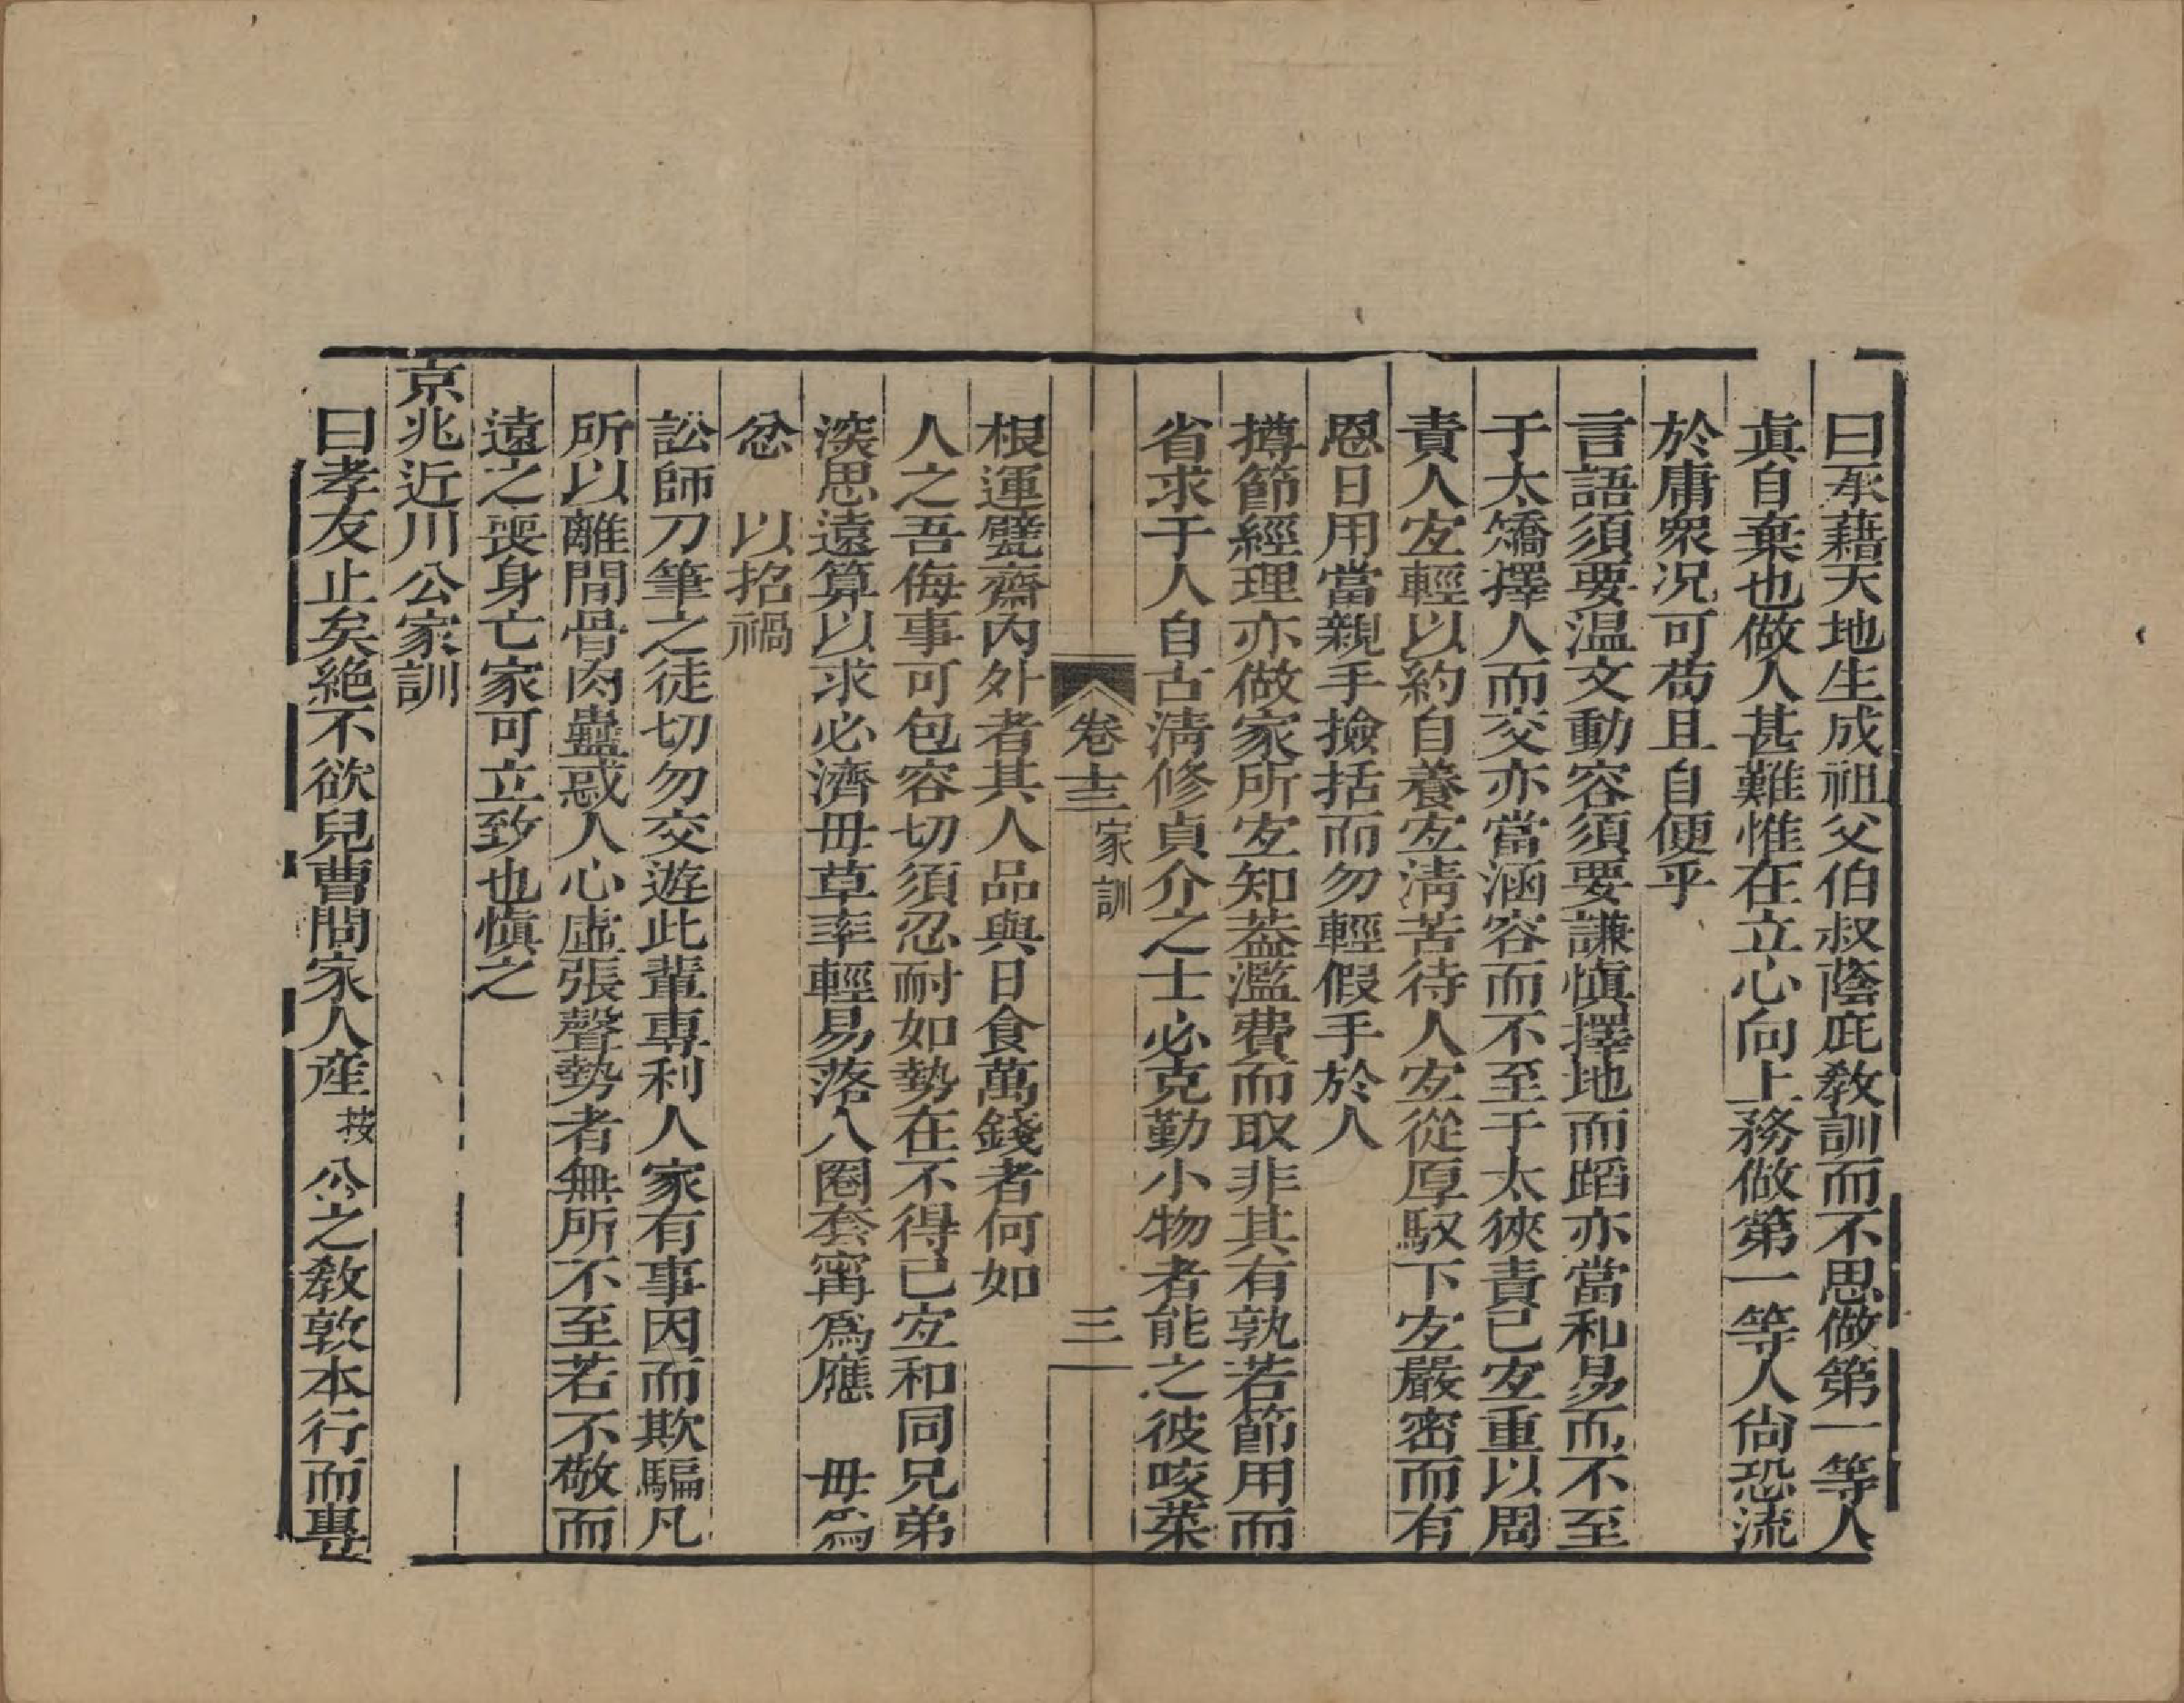 曰承藉天地生成祖父伯叔蔭庇教訓而不思做第一等人
眞自棄也做人甚難惟在立心向上務做第一等人尙恐流
於庸衆况可苟且自便乎
言語須要温文動容須要謙愼擇地而蹈亦當和易而不至
于太矯擇人而交亦當涵容而不至于太狹責已宐重以周
責人宐輕以約自養宐淸苦待人宐從厚馭下宐嚴密而有
恩日用當親手撿括而勿輕假手於人
撙節經理亦做家所宐知葢濫費而取非其有孰若節用而
省求于人自古淸修貞介之士必克勤小物者能之彼咬菜
卷十三 家訓 三
根運甓齋內外者其人品與日食萬錢者何如
人之吾侮事可包容切須忍耐如勢在不得已宐和同兄弟
深思遠算以求必濟毋草率輕易落入圈套寗爲應 毋爲
忿 以招禍
訟師刀筆之徒切勿交遊此輩專利人家有事因而欺騙凡
所以離間骨肉蠱惑人心虛張聲勢者無所不至若不敬而
遠之喪身亡家可立致也愼之
京兆近川公家訓
曰孝友止矣絶不欲兒曹問家人産 按 公之教敦本行而專